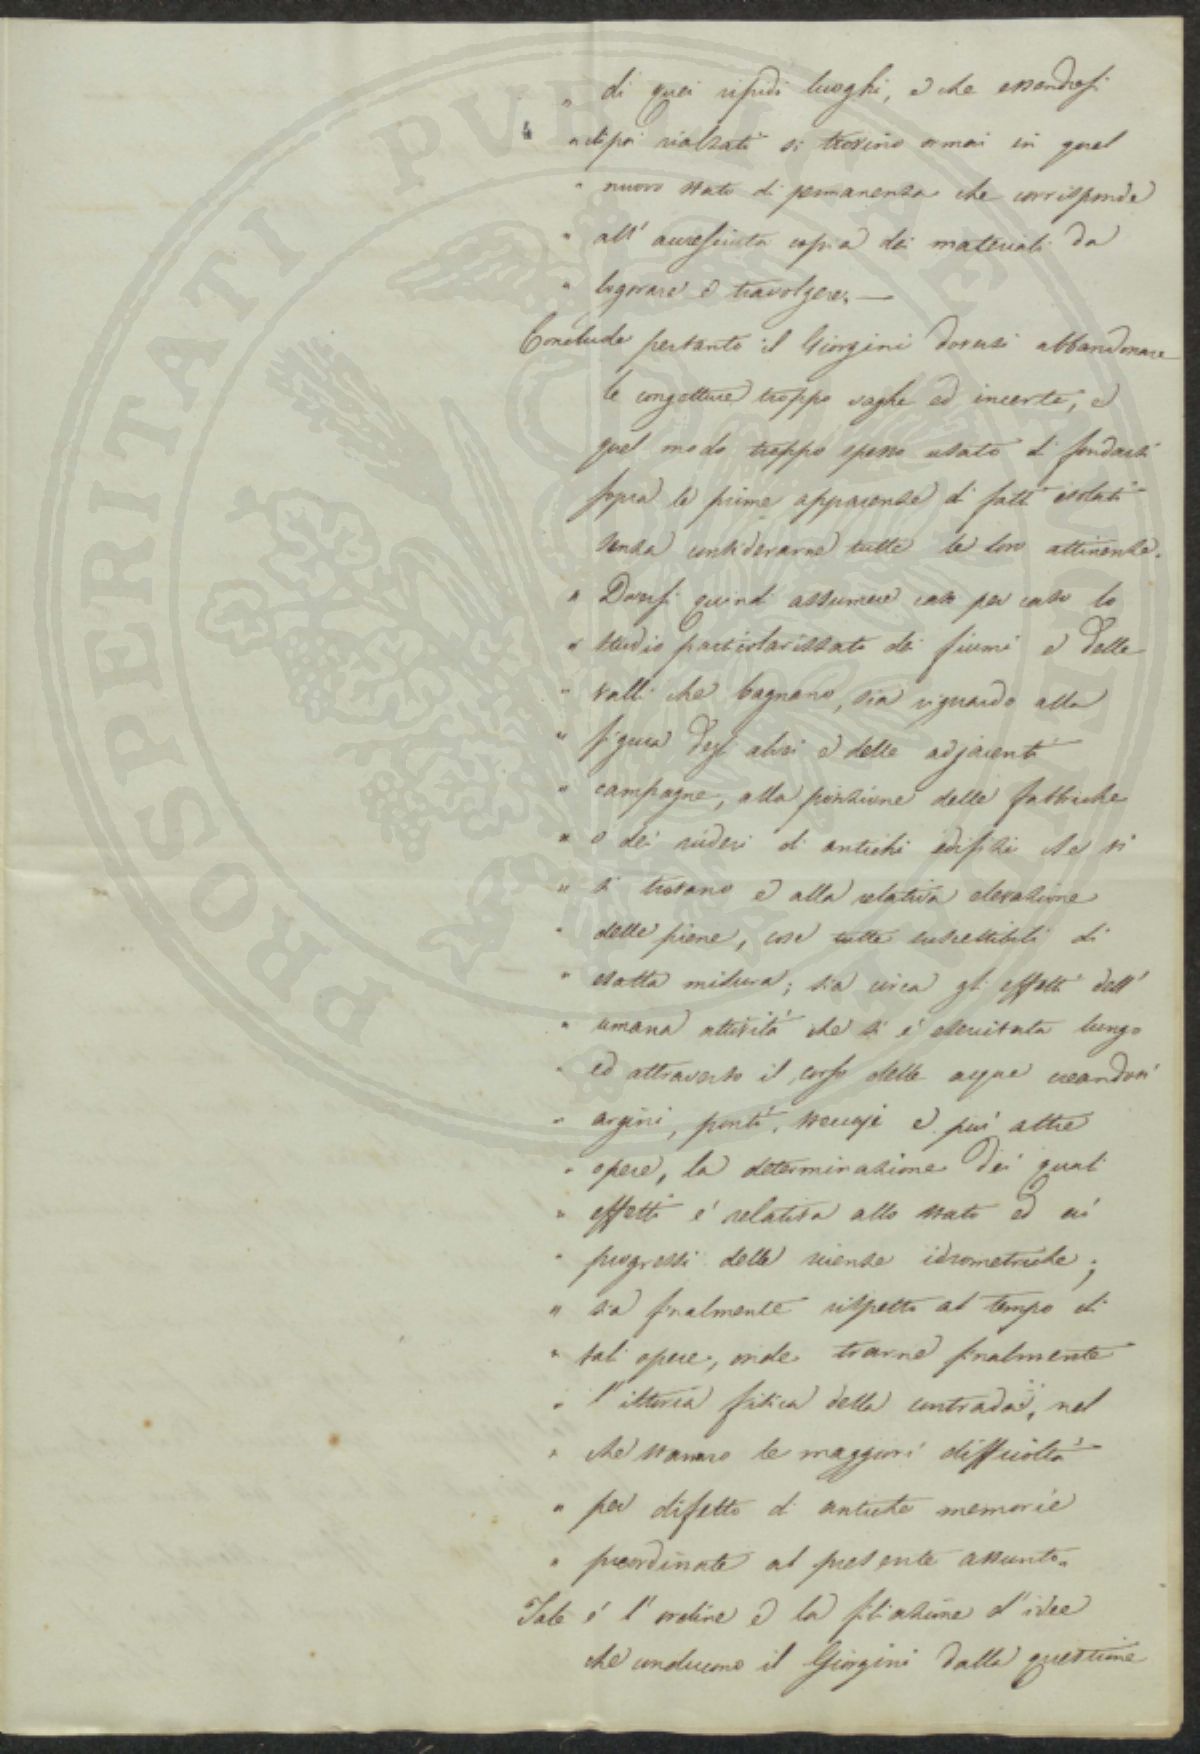 „ di quei ripidi luoghi, e che essendosi
„ dipoi rialzati si trovino ormai in quel
„ nuovo stato di permanenza che corrisponde
„ all' accresciuta copia dei materiali da
„ logorare e travolgere. —
Conclude pertanto il Giorgini doversi abbandonare
le congetture troppo vaghe ed incerte, e
quel modo troppo spesso usato di fondarsi
sopra le prime apparenze di fatti isolati
senza considerarne tutte le loro attinenze.
„ Doversi quindi assumere caso per caso lo
„ studio particolarizzato dei fiumi e delle
„ valli che bagnano, sia riguardo alla
„ figura degli alvei e delle adjacenti
„ campagne, alla posizione delle fabbriche
„ o dei ruderi di antichi edifizi che vi
„ si trovano e alla relativa elevazione
„ delle piene, cose tutte suscettibili di
„ esatta misura; sia circa gli effetti dell'
„ umana attività che si è esercitata lungo
„ ed attraverso il corso delle acque creandovi
„ argini, ponti, steccaje e più altre
„ opere, la determinazione dei quali
„ effetti è relativa allo stato ed ai
„ progressi delle scienze idrometriche;
„ sia finalmente rispetto al tempo di
„ tali opere, onde trarne finalmente
„ l'istoria fisica della contrada, nel
„ che stanno le maggiori difficoltà
„ per difetto di antiche memorie
„ preordinate al presente assunto„
Tale è l' ordine e la filiazione d'idee
che conducono il Giorgini dalla questione
PROSPERITATI PUBLICAE